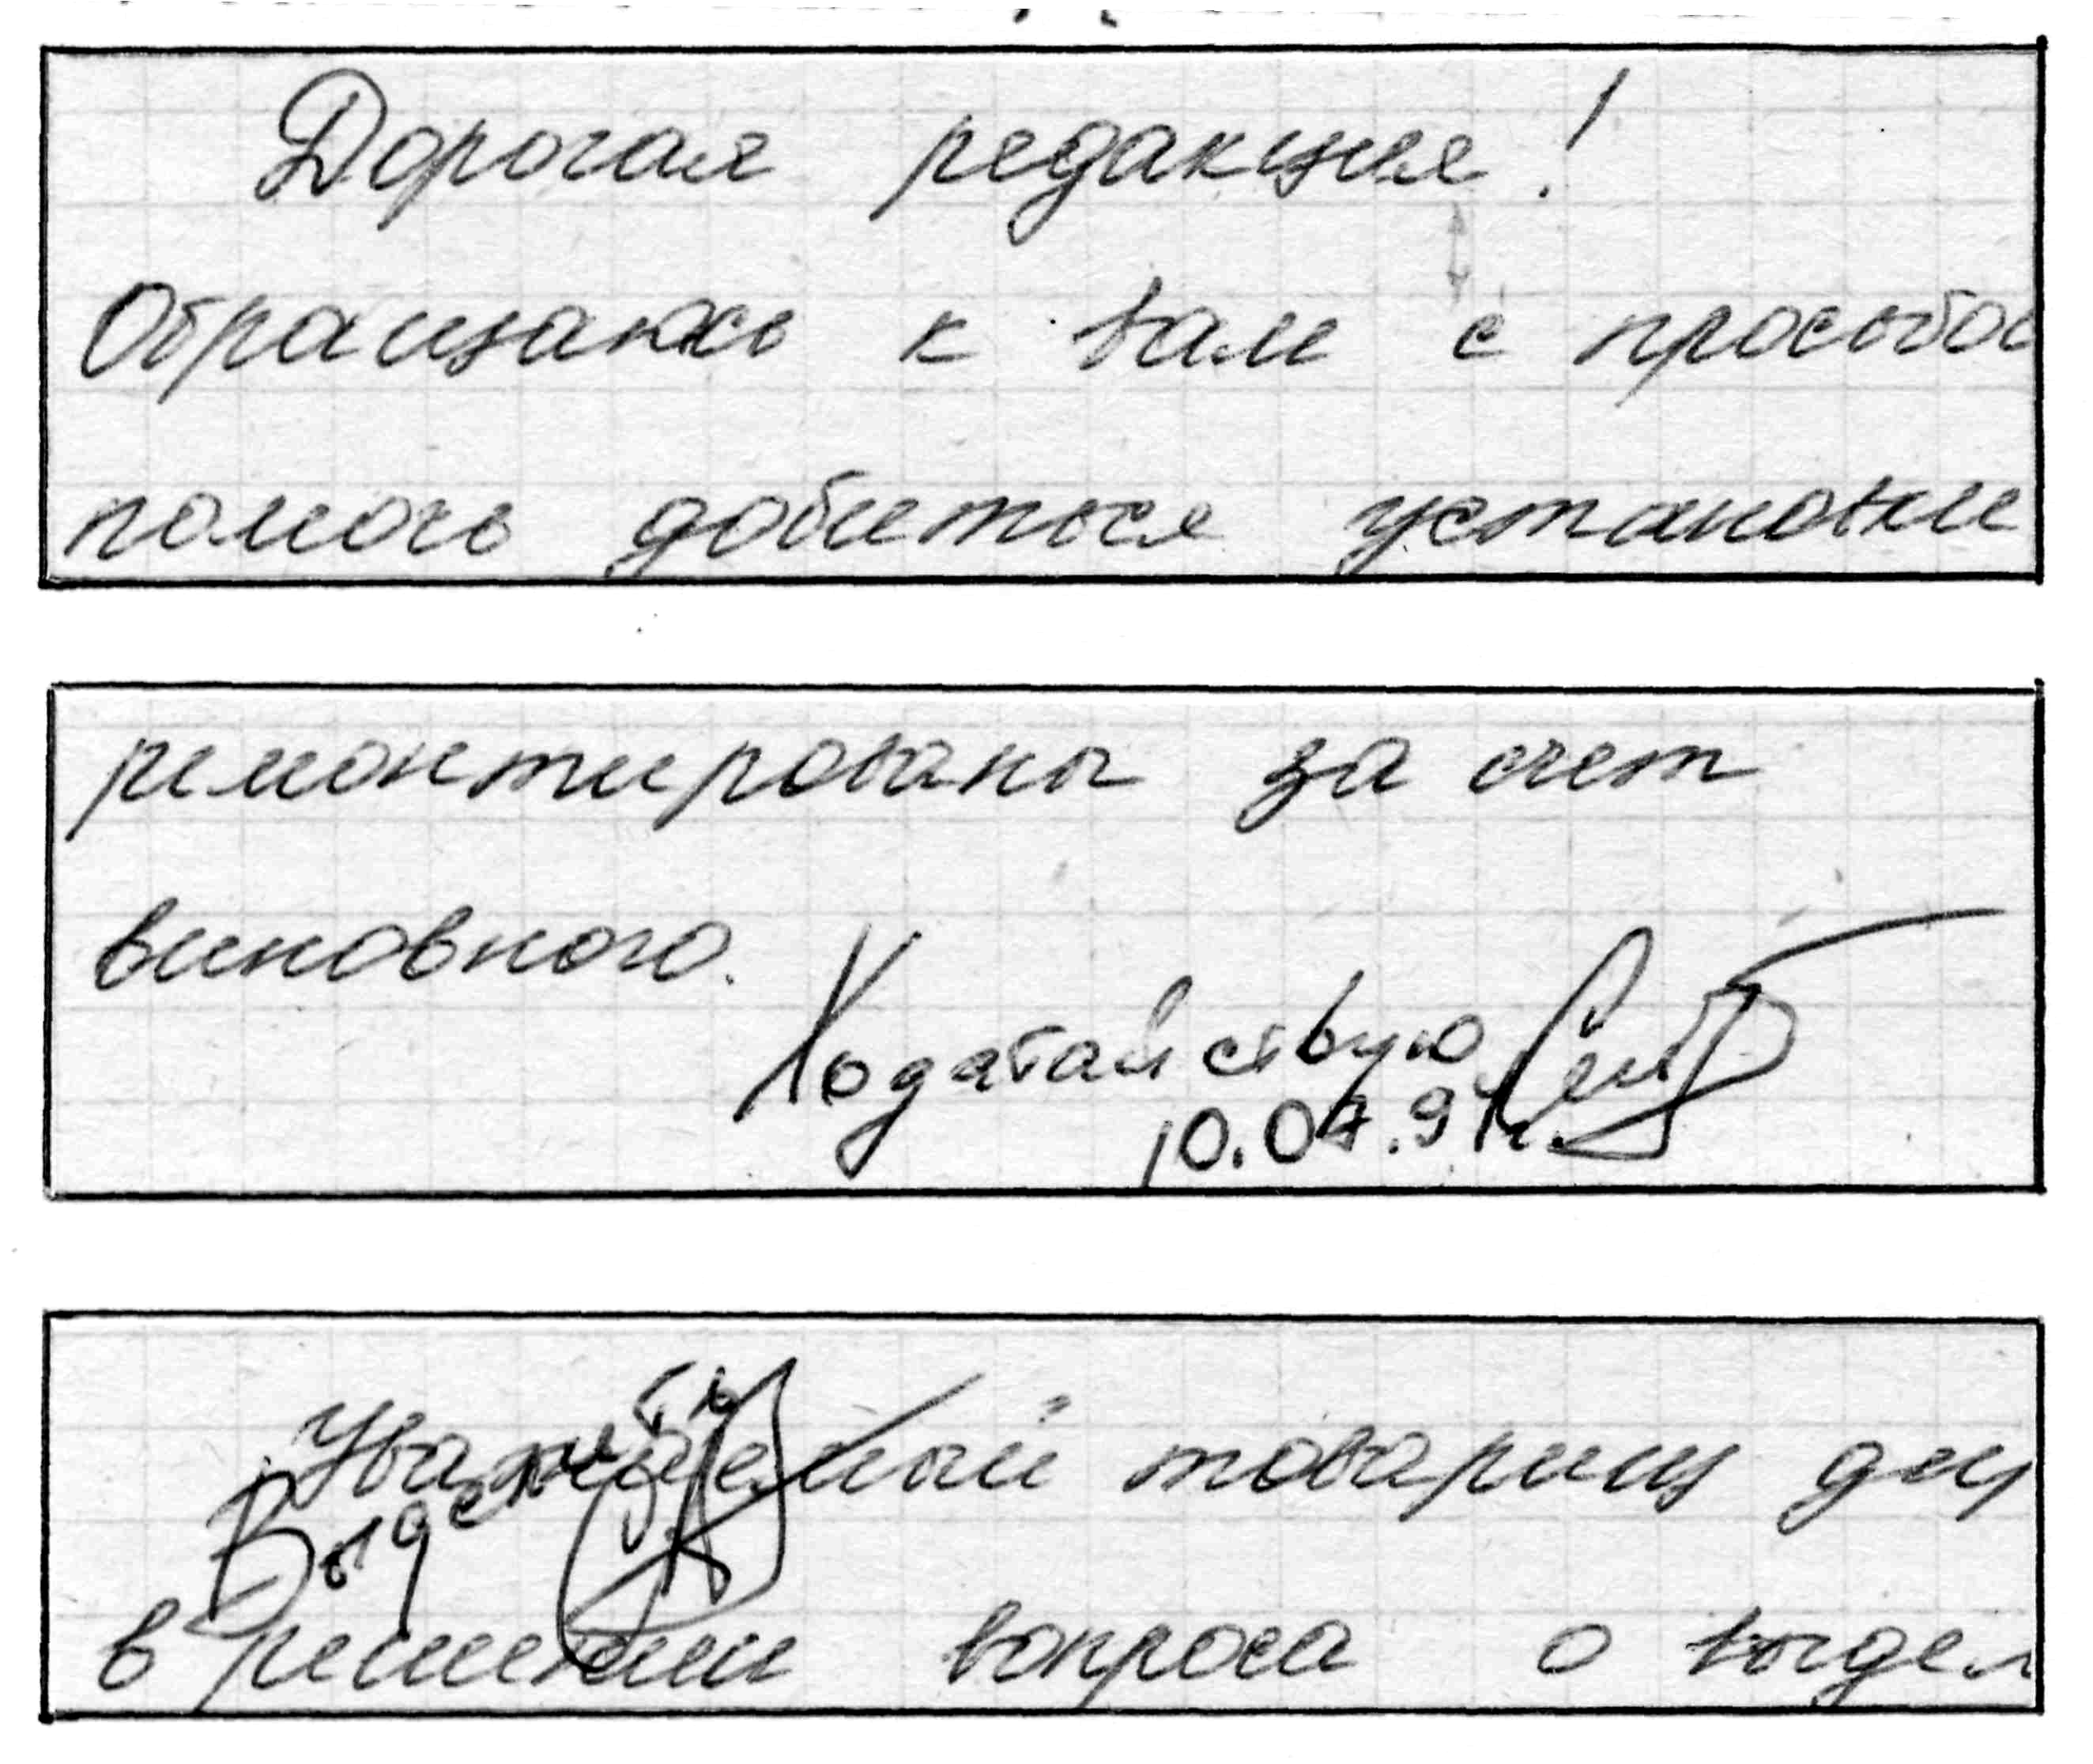 Дорогая редакция!
Обращаюсь к вам с просьбой
помочь добиться установки
ремонтированы за счет
виновного.
Ходатайствую
10.07.91г.
Уважаемый товарищ
Выделить
в решении вопроса о выдел